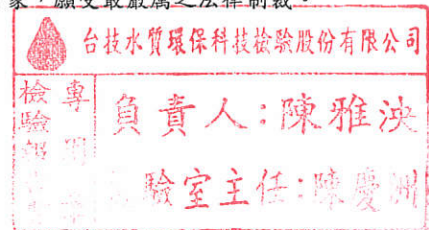 家，願受最嚴厲之法律制裁。
台技水質環保科技檢驗股份有限公司
檢驗報告專用章
負責人：陳雅泱
驗室主任：陳慶洲